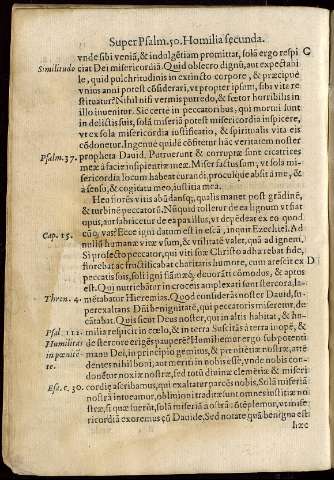 Super Psalm.50. Homilia secunda.
vnde sibi veniã, & indulgẽtiam promittat, solã ergo respi G
Similitudo ciat Dei misericordiã. Quid obsecro dignũ, aut expectabi
le, quid pulchritudinis in extincto corpore, & præcipuè
vnius anni potest cõsiderari, vt propter ipsum, sibi vita re
stituatur? Nihil nisi vermis putredo, & fœtor horribilis in
illo inuenitur. Sic certe in peccatoribus, qui mortui sunt
in delictis suis, solã miseriã potest misericordia inspicere,
vt ex sola misericordia iustificatio, & spiritualis vita eis
cõdonetur. Ingenuè quidẽ confitetur hãc veritatem noster
Psalm.37. propheta Dauid. Putruerunt & corruptæ sunt cicatrices
meæ à facie insipientiæ meæ. Miser factus sum, vt sola mi-
sericordia locum habeat curandi, procul quæ absit à me, &
à sensu, & cogitatu meo, iustitia mea.
Heo fioris vitis abũdansq; qualis manet post grãdinẽ,
& turbinẽ peccatorũ. Nũquid tolletur de ea lignum vt fiat
opus, aut fabricetur de ea paxillus, vt depẽdeat ex eo quod
Cap. 15. cũq; vas? Ecce igni datum est in escã, inquit Ezechiel. Ad
nullũ humanæ vitæ vsum, & vtilitatē valet, quã ad ignem,
Si profecto peccator, qui viti suæ Christo adhærebat fide,
florebat ac fructificabat charitatis humore, cum arescit ex D
peccatis suis, soli igni flãmæq; deuorãti cõmodus, & aptus
est. Qui nutriebãtur in croceis amplexati sunt stercora, la-
Thren. 4. mẽtabatur Hieremias. Quod cõsiderãs noster Dauid, su-
perexaltans Dãi benignitatē, qui peccatoris miseretur, de-
cãtabat. Quis sicut Deus noster, qui in altis habitat, & hu-
Psal. 112. milia respicit in cœlo, & in terra Suscitãs à terra inopẽ, &
Humilitas de stercore erigẽs pauperẽ? Humiliemur ergo sub potenti
in pœnitẽ- manu Dei, in principio gemitus, & pœnitẽtiæ nostræ, atte
te. dentes nihil boni, aut meriti in nobis esse, vnde nobis con-
donẽtur noxiæ nostræ, sed totũ diuinæ clemẽtiæ & miseri
Esa. c. 30. cordiæ ascribamus, qui exaltatur parcẽs nobis, Solã miseriã
nostrã intueamur, obliuioni traditæ sunt omnes iustitiæ no
stræ, si quæ fuerũt, solã miseriã nostrã cõtẽplemur, vt mise
ricordiã exoremus cũ Dauide, Sed notate quã benigna est
hæc